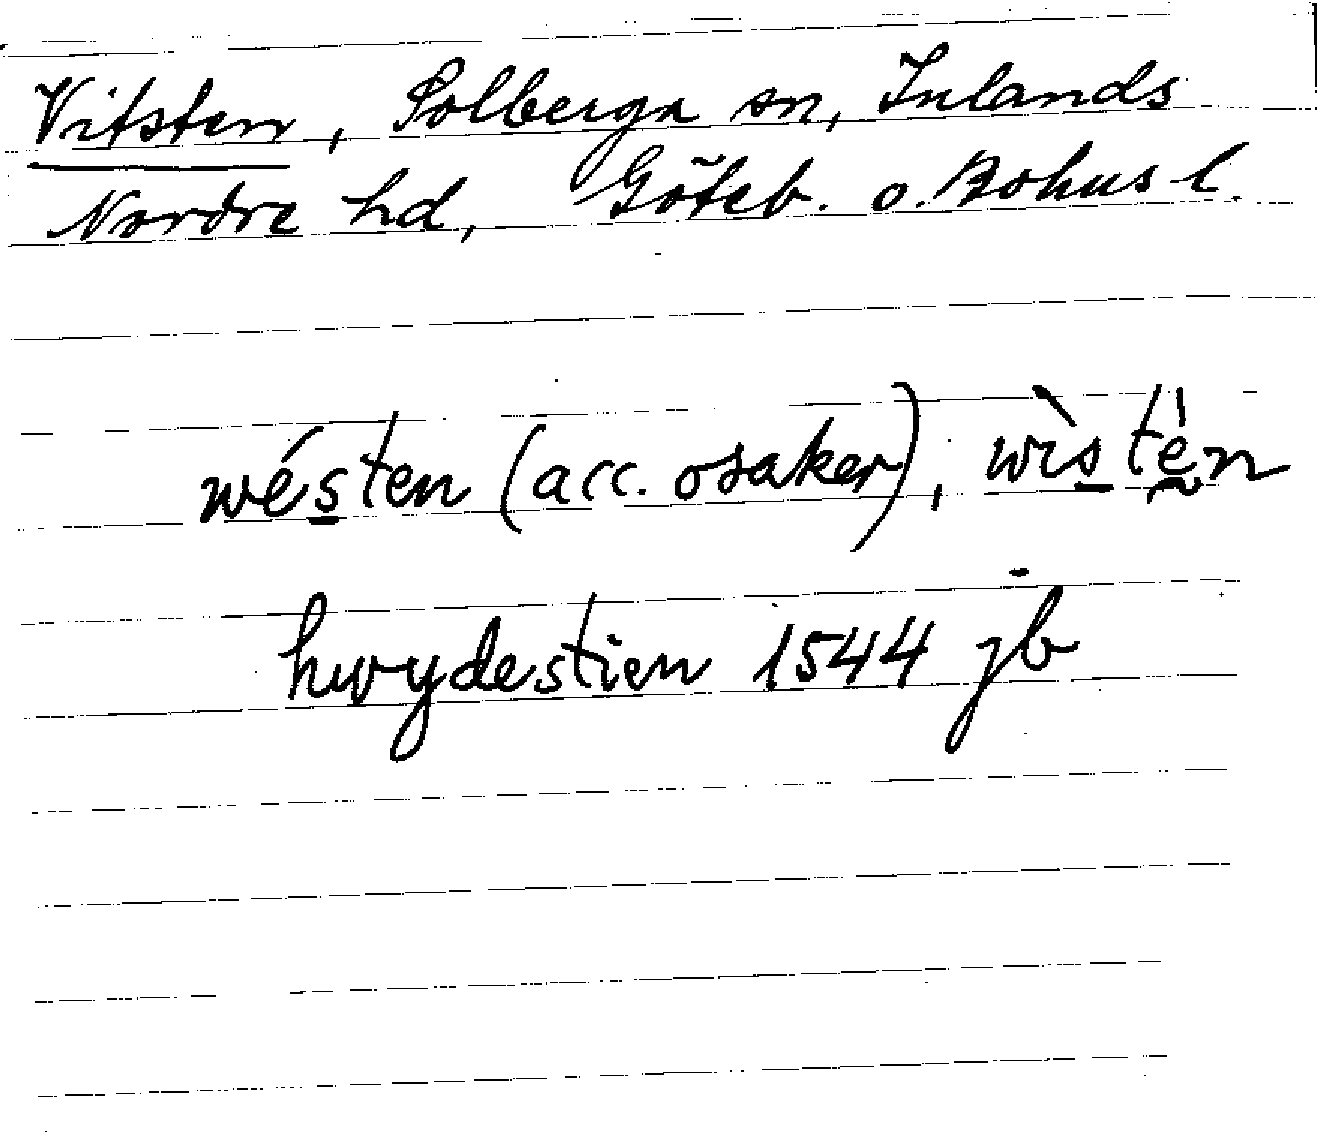 Vitsten, Solberga sn, Inlands
Nordre hd, Göteb. o. Bohus l.
wésten (acc. osaker), wìstḛ̀n
hwydestien 1544 jb